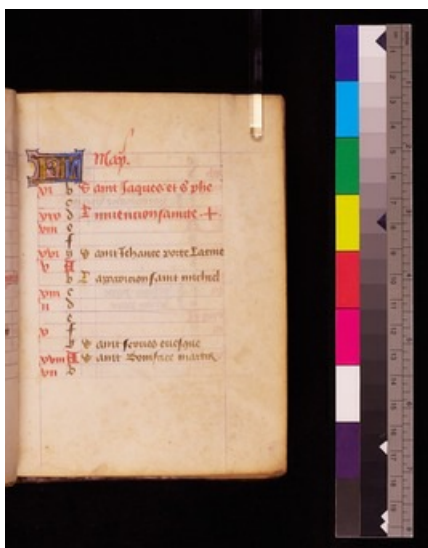 KL May.
xi b Saint Jaques et s phe
c
xix d Linvention sainte +
viii e
f
xvi g Saint Jehan porte Latine
v A
b Lapparicion saint michiel
xiii c
ii d
e
x f
g Saint servais evesque
xviii A Saint Boniface martir
vii b